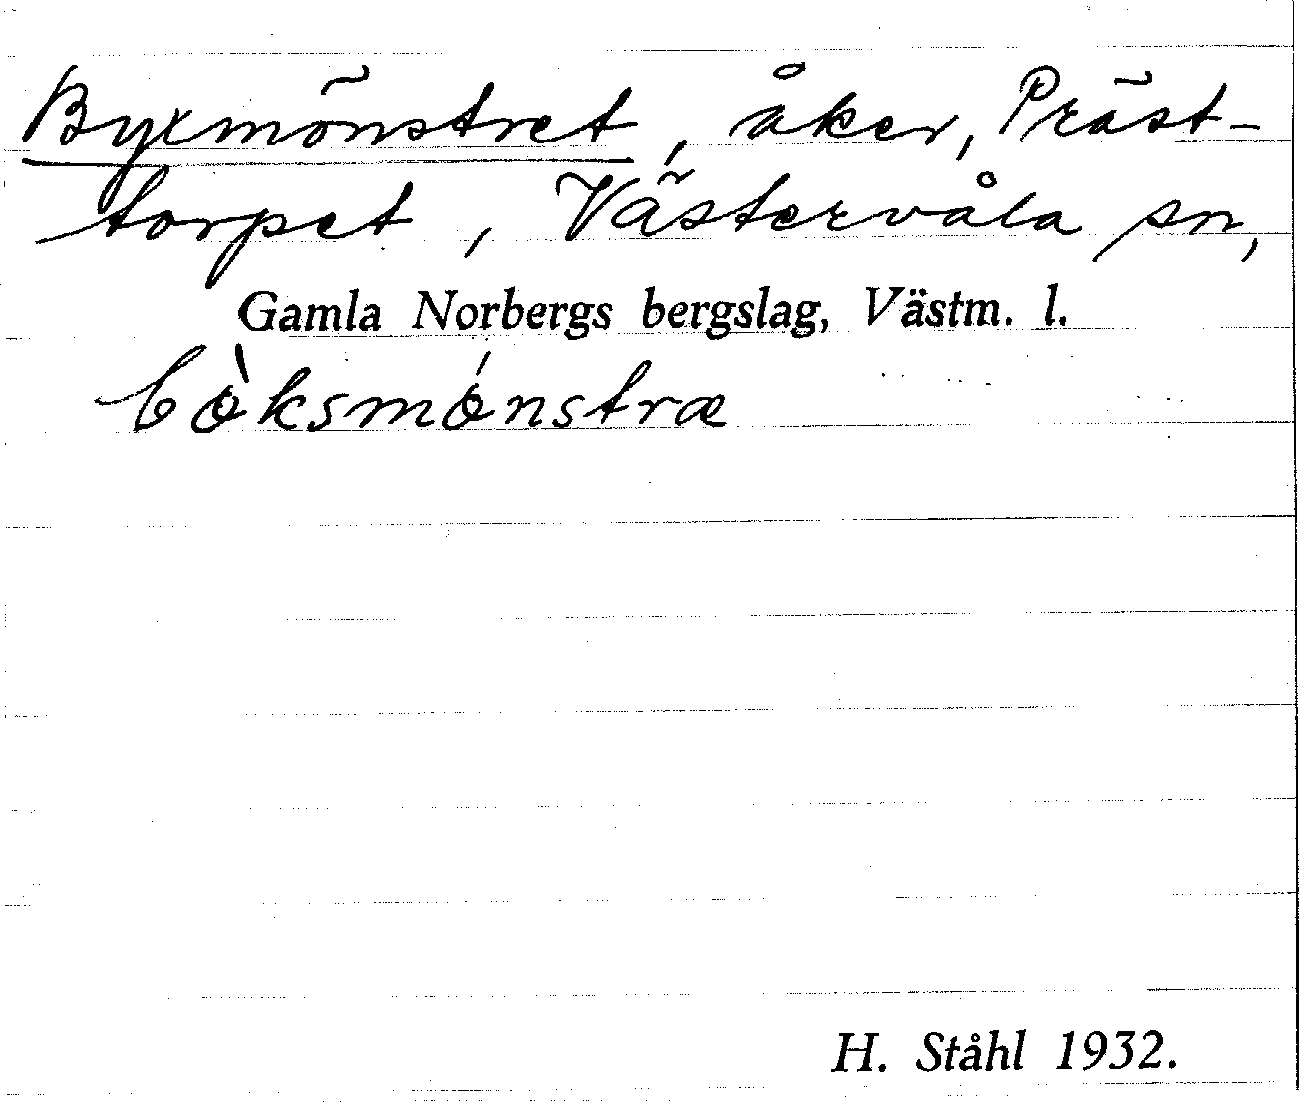 Byxmönstret, åker, Präst-
torpet, Västervåla sn,
Gamla Norbergs bergslag, Västm. l.
bö̀ksmö́nstræ
H. Ståhl 1932.